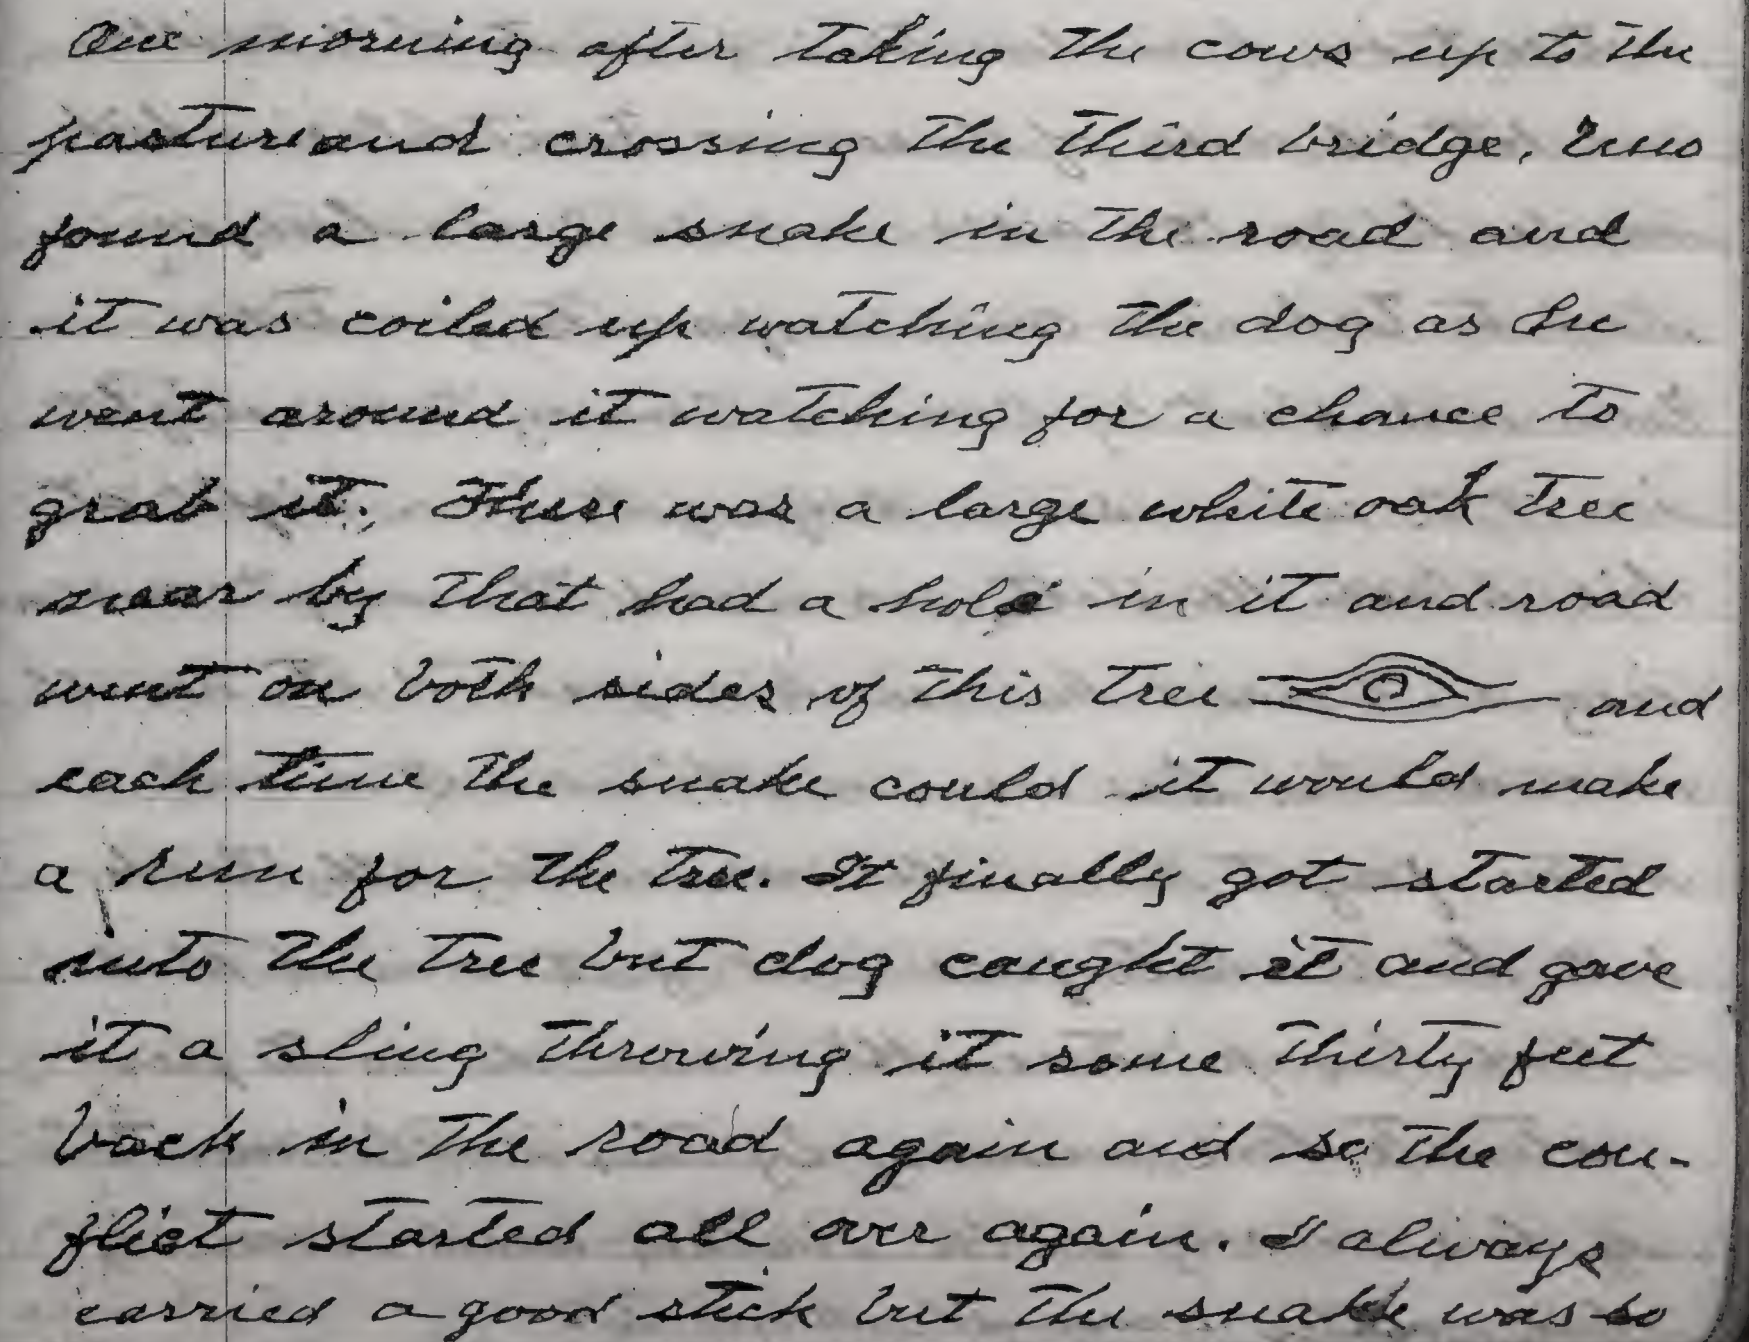 One morning after taking the cows up to the
pasture and crossing the third bridge,
found a large snake in the road and
it was coiled up watching the dog as he
went around it watching for a chance to
grab it. There was a large white oak tree
near by that had a hole in it and road
went on both sides of this tree and
each time the snake could it would make
a run for the tree. It finally got started
into the tree but dog caught it and gave
it a sling throwing it some thirty feet
back in the road again and so the con-
flict started all over again. I always
carried a good stick but the snake was so